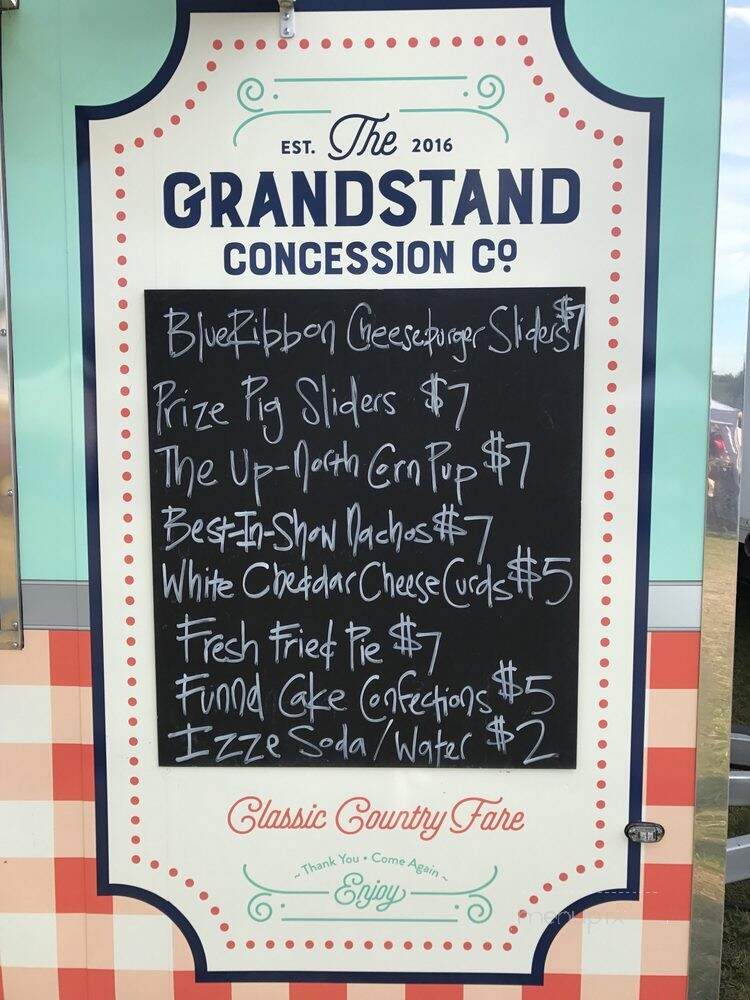 EST. The 2016
GRANDSTAND
CONCESSION CO
BlueRibbon Cheeseburger Sliders $7
Prize Pig Sliders $7
The Up-North Corn Pup $7
Best-In-Show Nachos $7
White Cheddar Cheese Curds $5
Fresh Fried Pie $7
Funnel Cake Confections $5
Izze Soda/Water $2
Classic Country Fare
~ Thank You • Come Again ~
Enjoy
menupix